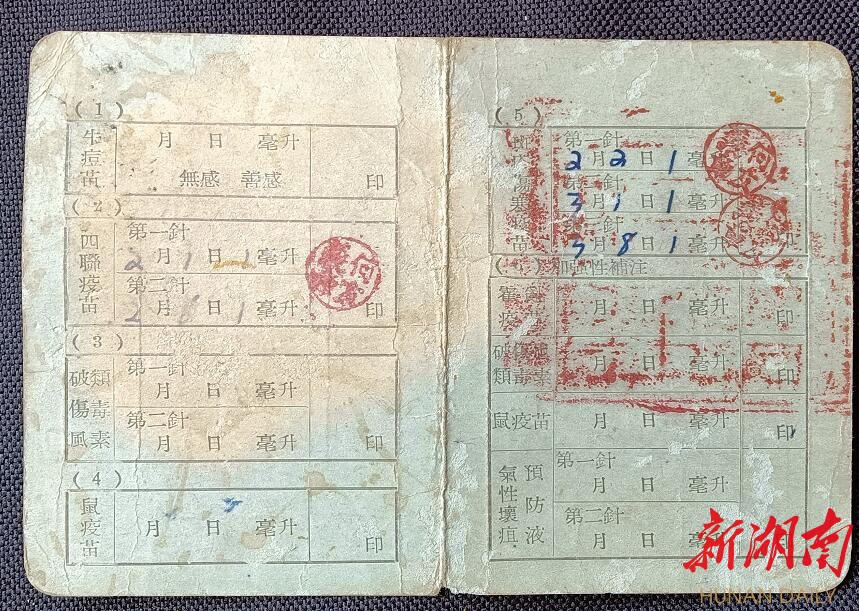 (1)
牛痘苗
月 日 毫升
無感 善感 印
(2)
四聯疫苗
第一針
2月1日1毫升
第二針
2月6日1毫升 印
(3)
破傷風類毒素
第一針
月 日 毫升
第二針
月 日 毫升 印
(4)
鼠疫苗
月 日 毫升 印
(5)
第一針
2月2日1毫升
第二針
3月1日1毫升
第一針
月8日1毫升 印
性補注
霍亂疫苗
月 日 毫升 印
破傷風類毒素
月 日 毫升 印
鼠疫苗 月 日 毫升 印
氣性壞疽預防液
第一針
月 日 毫升
第二針
月 日 毫升
新湖南
HUNAN DAILY